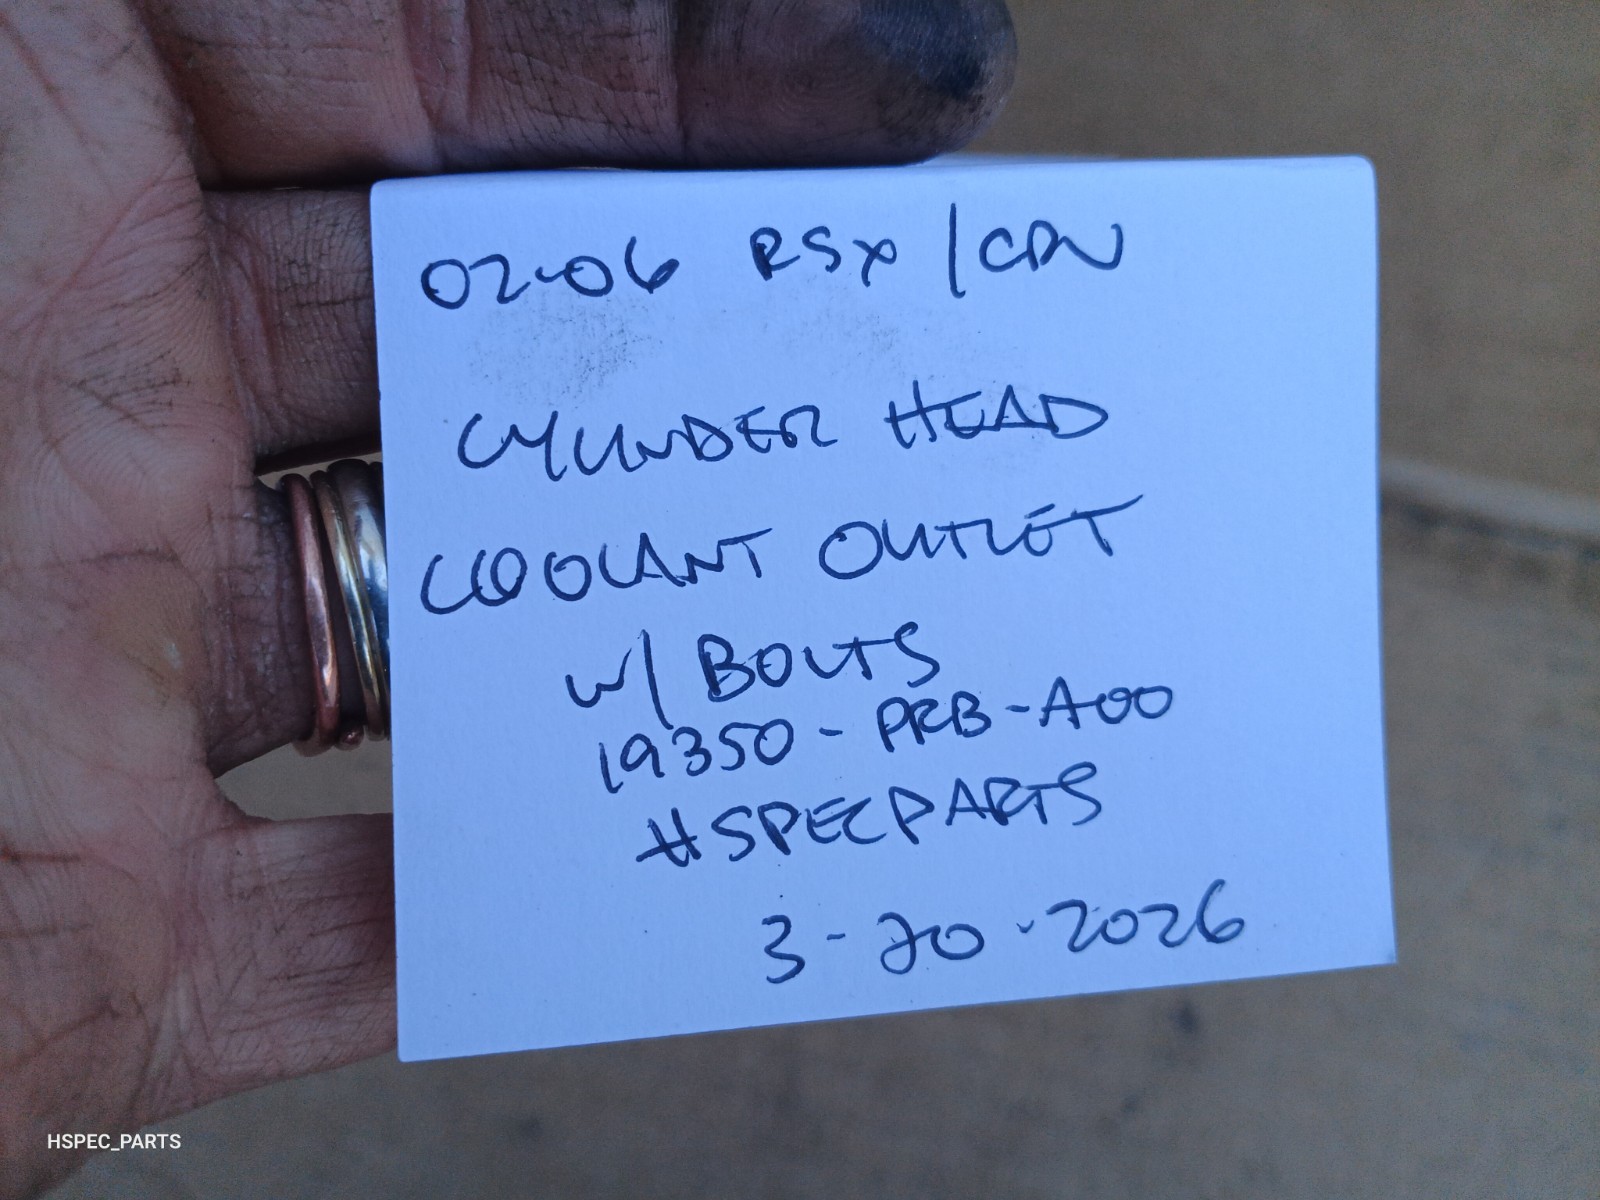 02-06 RSX/CRV
CYLINDER HEAD
COOLANT OUTLET
W/ BOLTS
19350-PRB-A00
HSPECPARTS
3-20-2026
HSPEC_PARTS